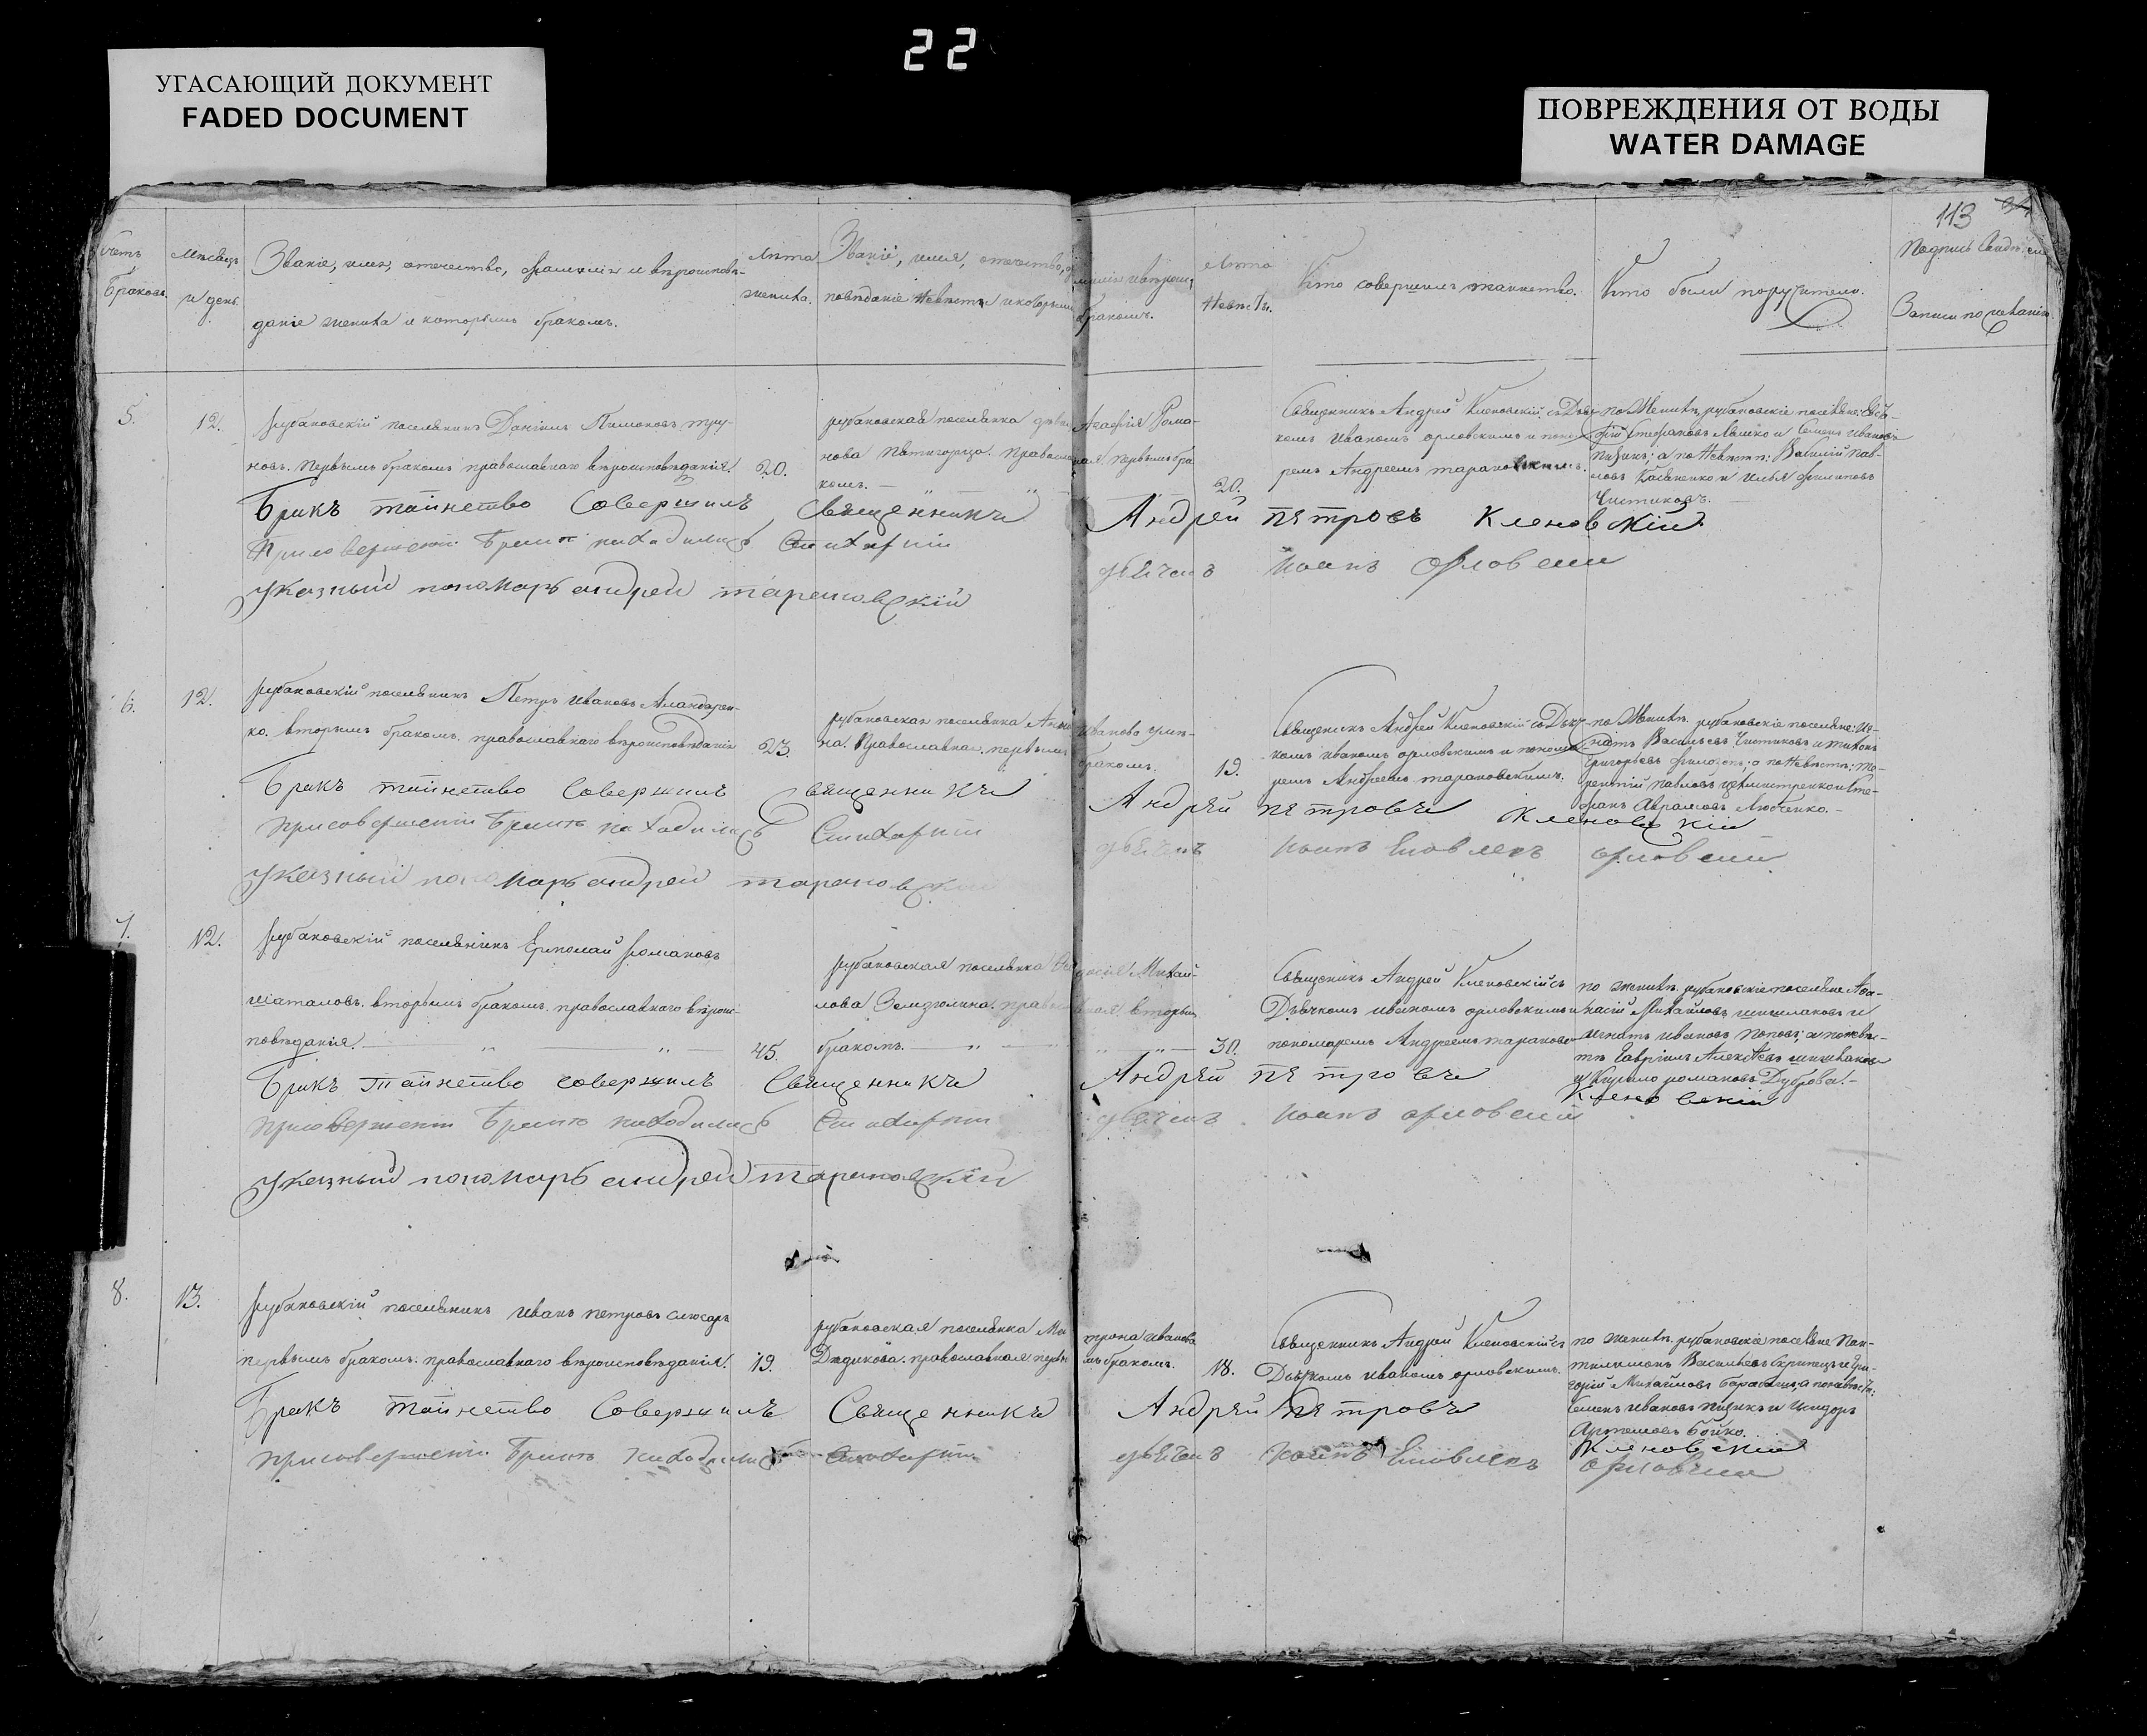 22
УГАСАЮЩИЙ ДОКУМЕНТ
FADED DOCUMENT
ПОВРЕЖДЕНИЯ ОТ ВОДЫ
WATER DAMAGE
113
Счетъ Браковъ.
Мѣсяцъ и день.
Званіе, имя, отечество, фамилія и вѣроисповѣ-
даніе жениха и которымъ бракомъ.
Лѣта жениха.
Званіе, имя, отечество, фамилія и вѣроис-
повѣданіе невѣсты и которымъ бракомъ.
Лѣта Невѣсты.
Кто совершилъ таинство.
Кто были поручители.
Записи по
5.
12.
рубановскій поселянинъ Даніилъ
новъ. Первымъ бракомъ православнаго вѣроисповѣданія.
20.
рубановская поселянка Агафія Рома-
нова Пятигорца. Православная. первымъ бра-
комъ.
20.
Священникъ Андрей Кленовскій съ Дья-
комъ Иваномъ орловскимъ и понома-
ремъ Андреемъ тарановскимъ.
по Женихѣ, рубановскіе поселяне:
Стефановъ Ляшко и Семенъ Ивановъ
а по Невѣстѣ: Василій Пав-
ловъ и Илья Филиповъ
Чистиковъ.
Бракъ таинство Совершилъ Священникъ Андрей Петровъ Кленовскій
При совершеніи находился дьячекъ Иоанъ Орловскій
указный пономарь андрей тарановскій
6.
12.
рубановскій поселянинъ Петръ Ивановъ
ко. вторымъ бракомъ. православнаго вѣроисповѣданія
23.
рубановская поселянка Иванова
на. Православная. первымъ бракомъ.
19.
Священикъ Андрей Кленовскій съ Дья-
комъ иваномъ орловскимъ и понома-
ремъ Андреемъ тарановскимъ.
по Женихѣ. рубановскіе поселяне: Иг-
натъ Васильевъ Чистиковъ и тихонъ
Григорьевъ а по Невѣстѣ: Те-
рентій Павловъ и Сте-
фанъ Аврамовъ Любченко.
Бракъ таинство Совершилъ священникъ Андрей Петровъ Кленовскій
При совершеніи находился дьячекъ Иоанъ Яковлевъ орловскій
указный пономарь андрей тарановскій
7.
12.
рубановскій поселянинъ Ермолай Романовъ
шаталовъ. вторымъ бракомъ. православнаго вѣроис-
повѣданія.
45.
рубановская поселянка Михай-
лова Земдюлина. православная вторымъ
бракомъ.
30.
Священикъ Андрей Кленовскій съ
Дьячкомъ иваномъ орловскимъ и
пономаремъ Андреемъ тарановски
по женихѣ. рубановскіе поселяне Афа-
насій Михайловъ и
игнатъ ивановъ Поповъ; а по невѣс-
тѣ Гавріилъ Алексѣевъ
и Кирило романовъ Дуброва.
Бракъ таинство совершилъ Священникъ Андрей Петровъ Кленовскій
При совершеніи находился дьячекъ Иоанъ орловскій
указный пономарь андрей тарановскій
8.
13.
рубановскій поселянинъ иванъ петровъ слюсарь
первымъ бракомъ. православнаго вѣроисповѣданія.
19.
рубановская поселянка Матрона иванова
Дѣдикова. православная. первымъ бракомъ.
18.
Священникъ Андрей Кленовскій съ
Дьячкомъ иваномъ орловскимъ.
по женихѣ. рубановскіе поселяне Пан-
тилимонъ Васильевъ и Гри-
горій Михайловъ а по невѣстѣ:
Семенъ ивановъ и Исидоръ
Артемовъ Бойко.
Бракъ таинство Совершилъ Священникъ Андрей Петровъ Кленовскій
При совершеніи находился дьячекъ Иоанъ Яковлевъ орловскій